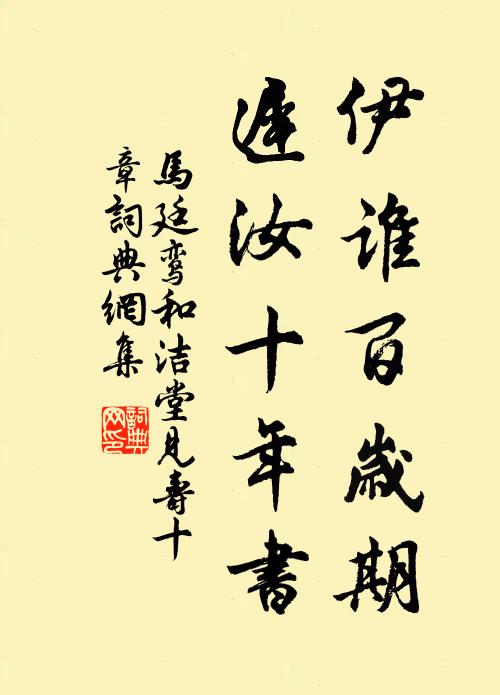 伊谁百歲期
遲汝十年書
馬廷鸾和洁堂見壽十
章詞典網集
詞典网印